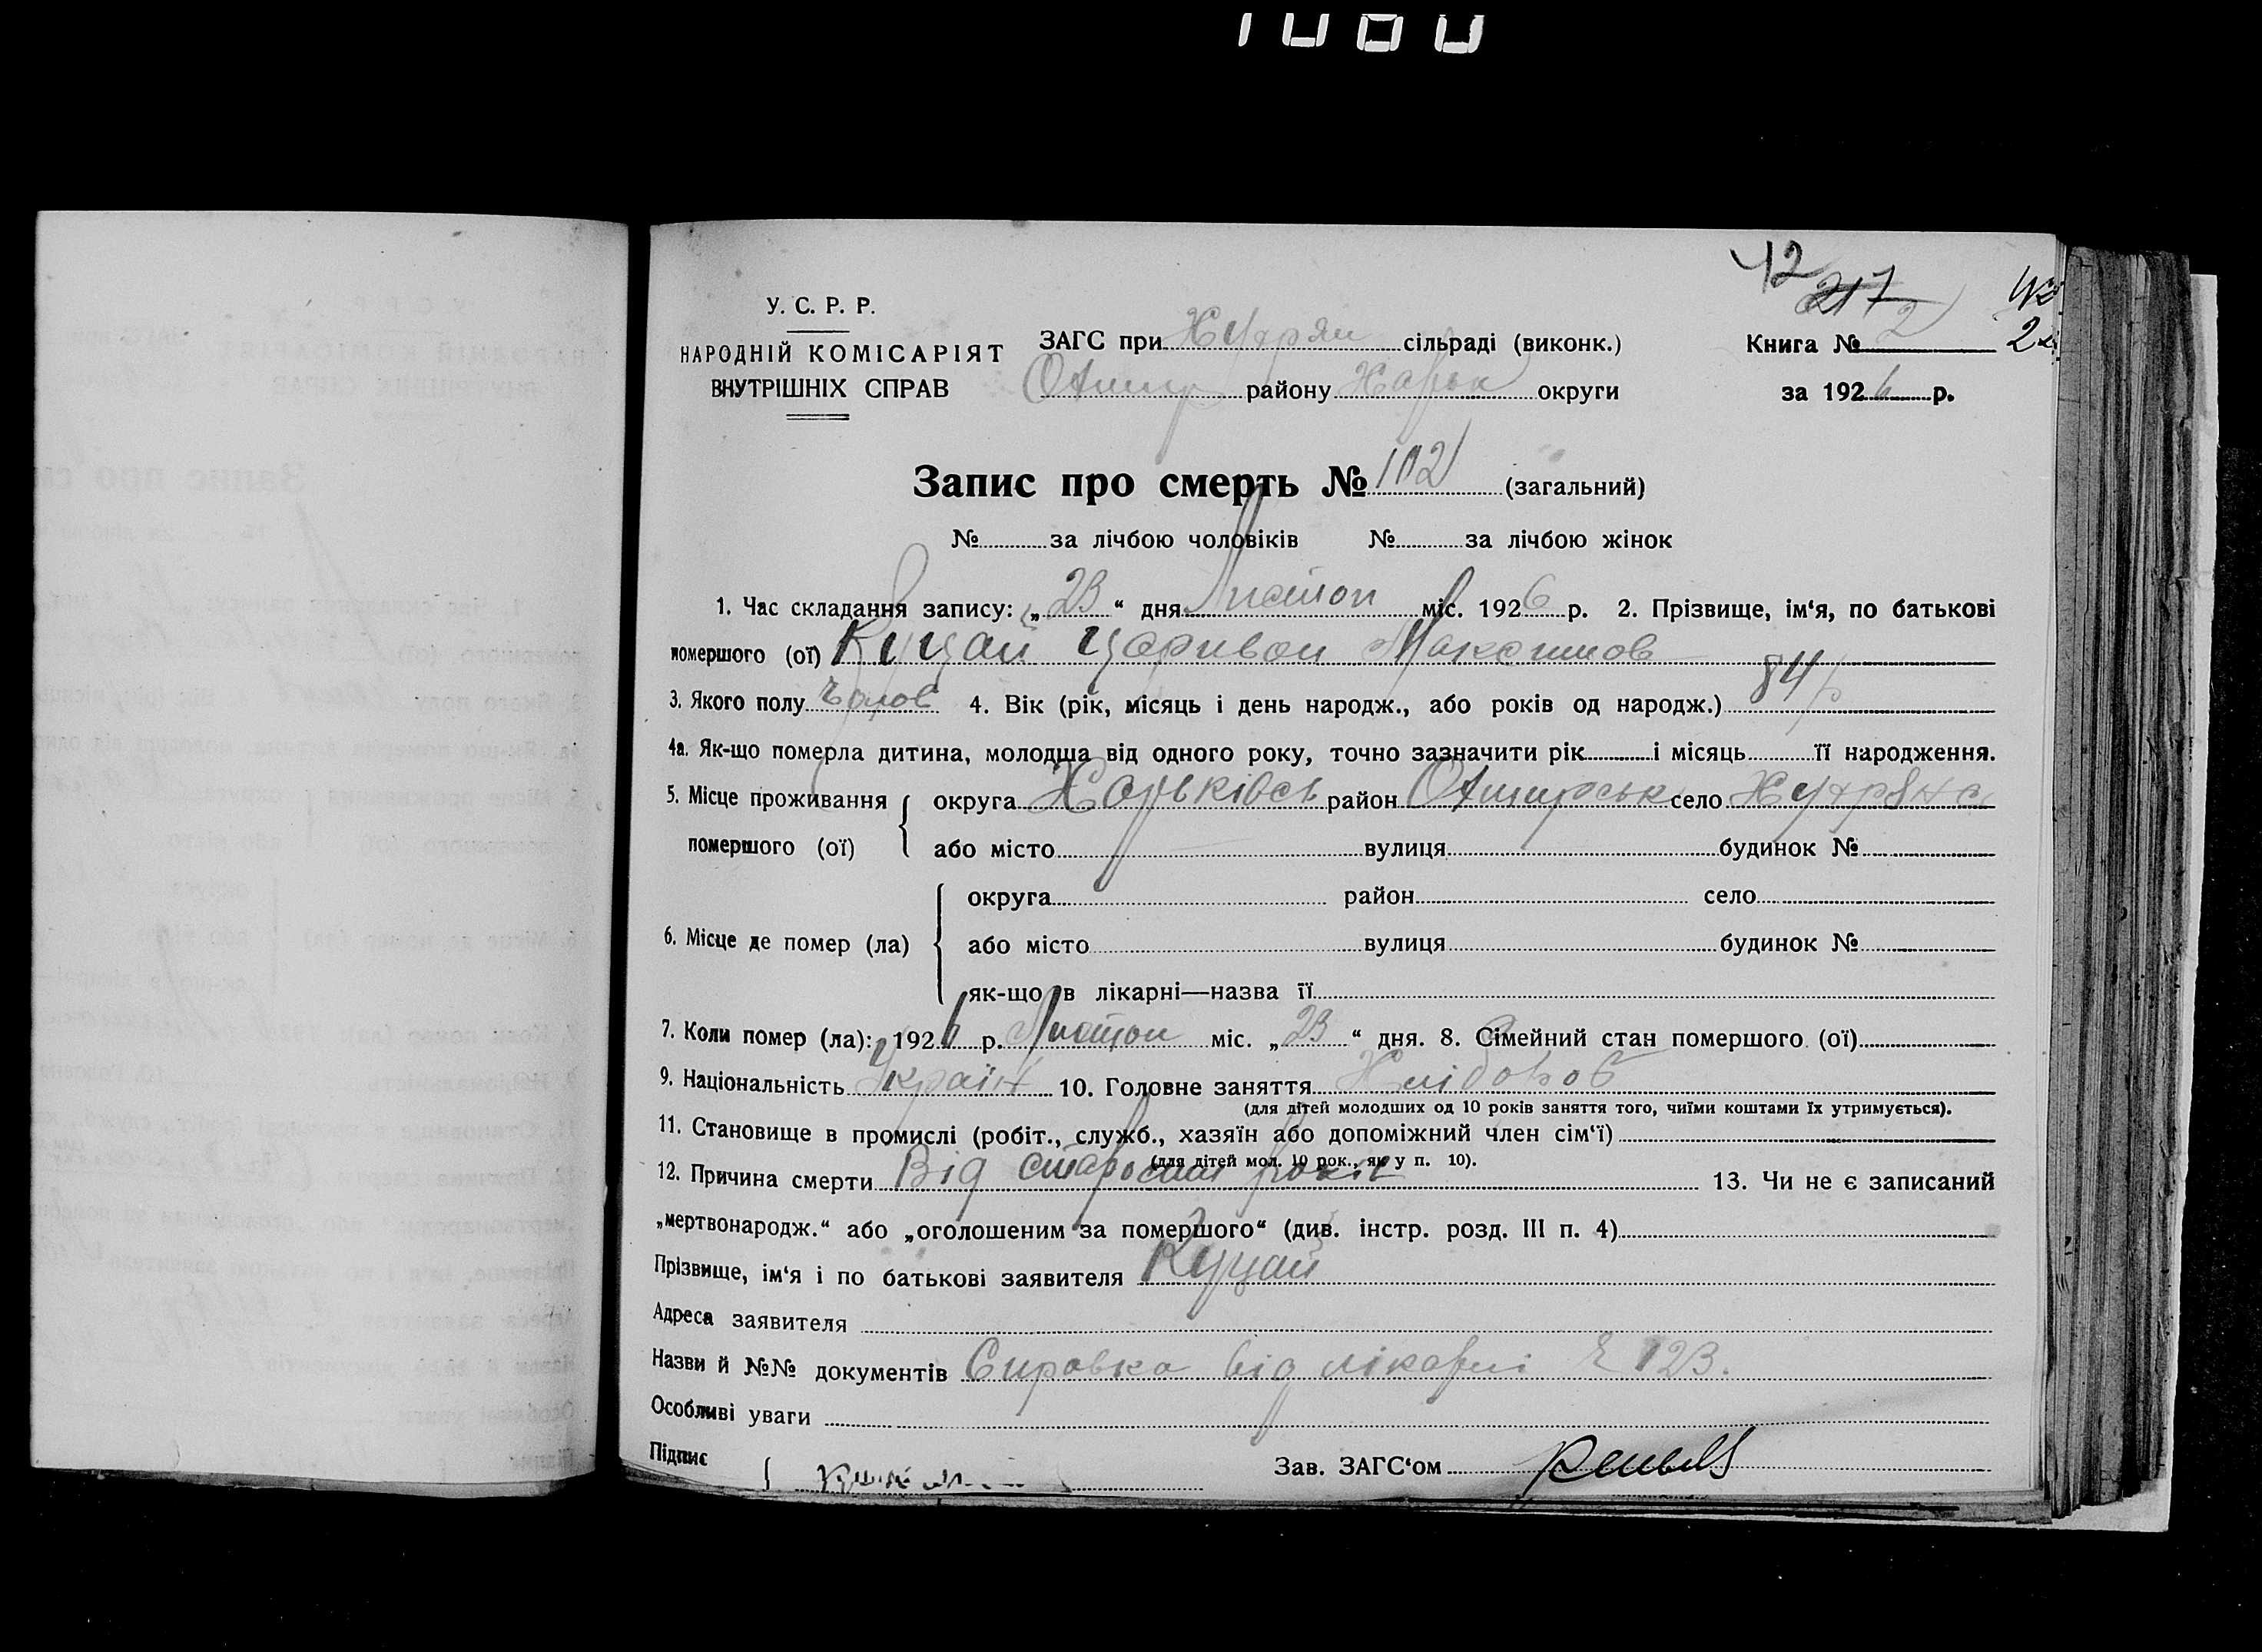 1080
42
217
У. С. Р. Р.
НАРОДНІЙ КОМІСАРІЯТ
ВНУТРІШНІХ СПРАВ
ЗАГС при сільраді (виконк.)
Отшир району Харьк округи
Книга № 2
за 1926 р.
Запис про смерть № 102 (загальний)
№ за лічбою чоловіків № за лічбою жінок
1. Час складання запису: „23“ дня Листоп міс. 1926 р. 2. Прізвище, ім‘я, по батькові
помершого (ої) Куцай Максимов
3. Якого полу Чолов 4. Вік (рік, місяць і день народж., або років од народж.) 84 р
4а. Як-що померла дитина, молодша від одного року, точно зазначити рік і місяць її народження.
5. Місце проживання помершого (ої) округа Харьківсь район село
або місто вулиця будинок №
6. Місце де помер (ла) округа район село
або місто вулиця будинок №
як-що в лікарні—назва її
7. Коли помер (ла): 1926 р. Листоп міс. „23“ дня. 8. Сімейний стан помершого (ої)
9. Національність Україн 10. Головне заняття Хлібороб
(для дітей молодших од 10 років заняття того, чиїми коштами їх утримується).
11. Становище в промислі (робіт., служб., хазяїн або допоміжний член сім‘ї)
(для дітей мол. 10 рок., як у п. 10).
12. Причина смерти Від старости років 13. Чи не є записаний
„мертвонародж.“ або „оголошеним за помершого“ (див. інстр. розд. III п. 4)
Прізвище, ім‘я і по батькові заявителя Куцай
Адреса заявителя
Назви й №№ документів Справка від лікарні 123.
Особливі уваги
Підпис Зав. ЗАГС‘ом